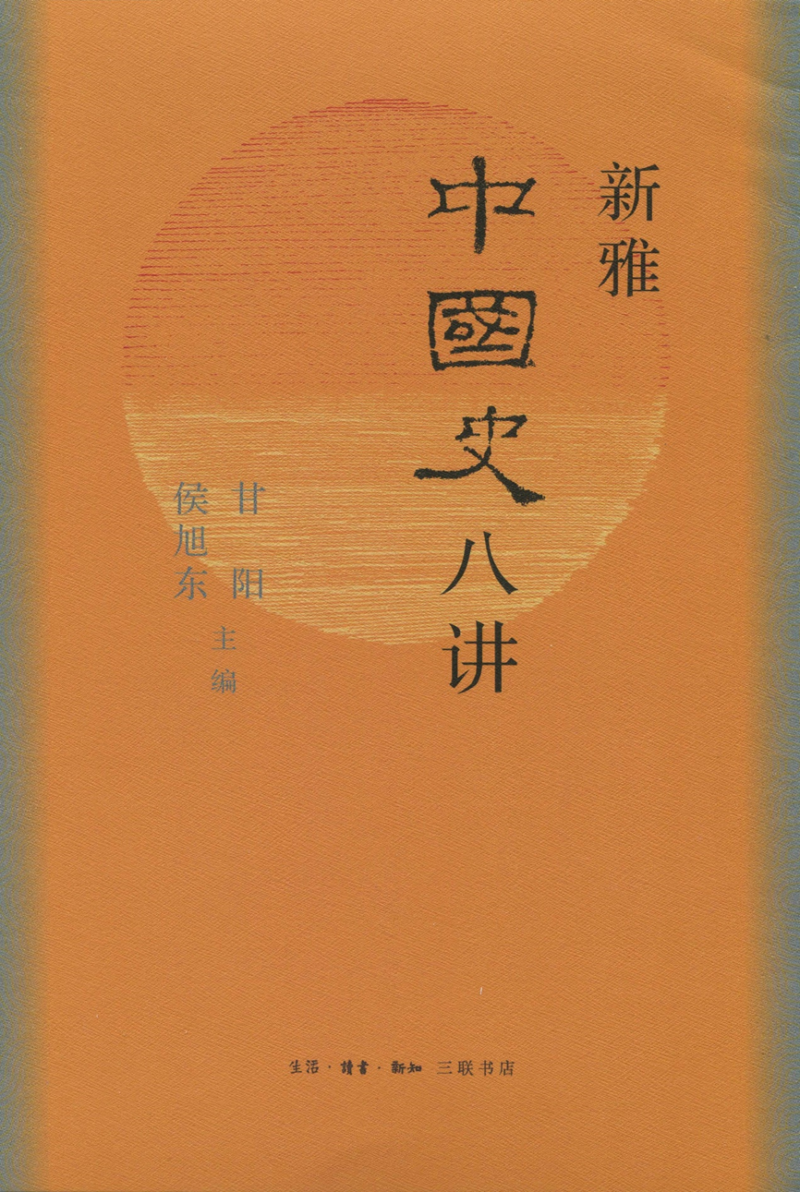 新雅
中國史八讲
甘阳
侯旭东
主编
生活·讀書·新知 三联书店